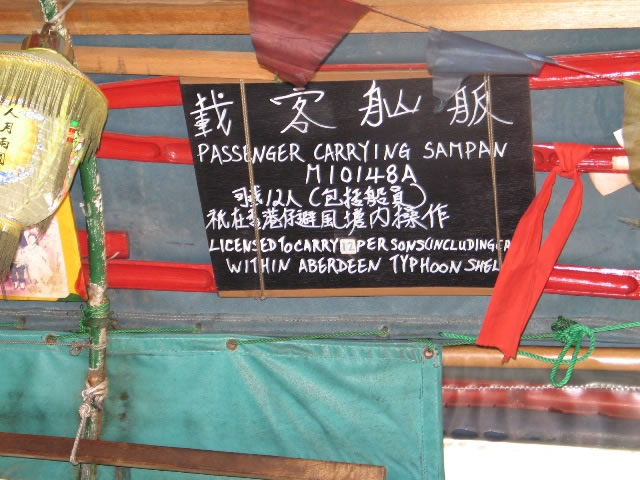 載客舢舨
PASSENGER CARRYING SAMPAN
M10148A
可載12人(包括船員)
祇在香港仔避風塘內操作
LICENSED TO CARRY 12 PERSONS (INCLUDING
WITHIN ABERDEEN TYPHOON SHEL
人月兩圓